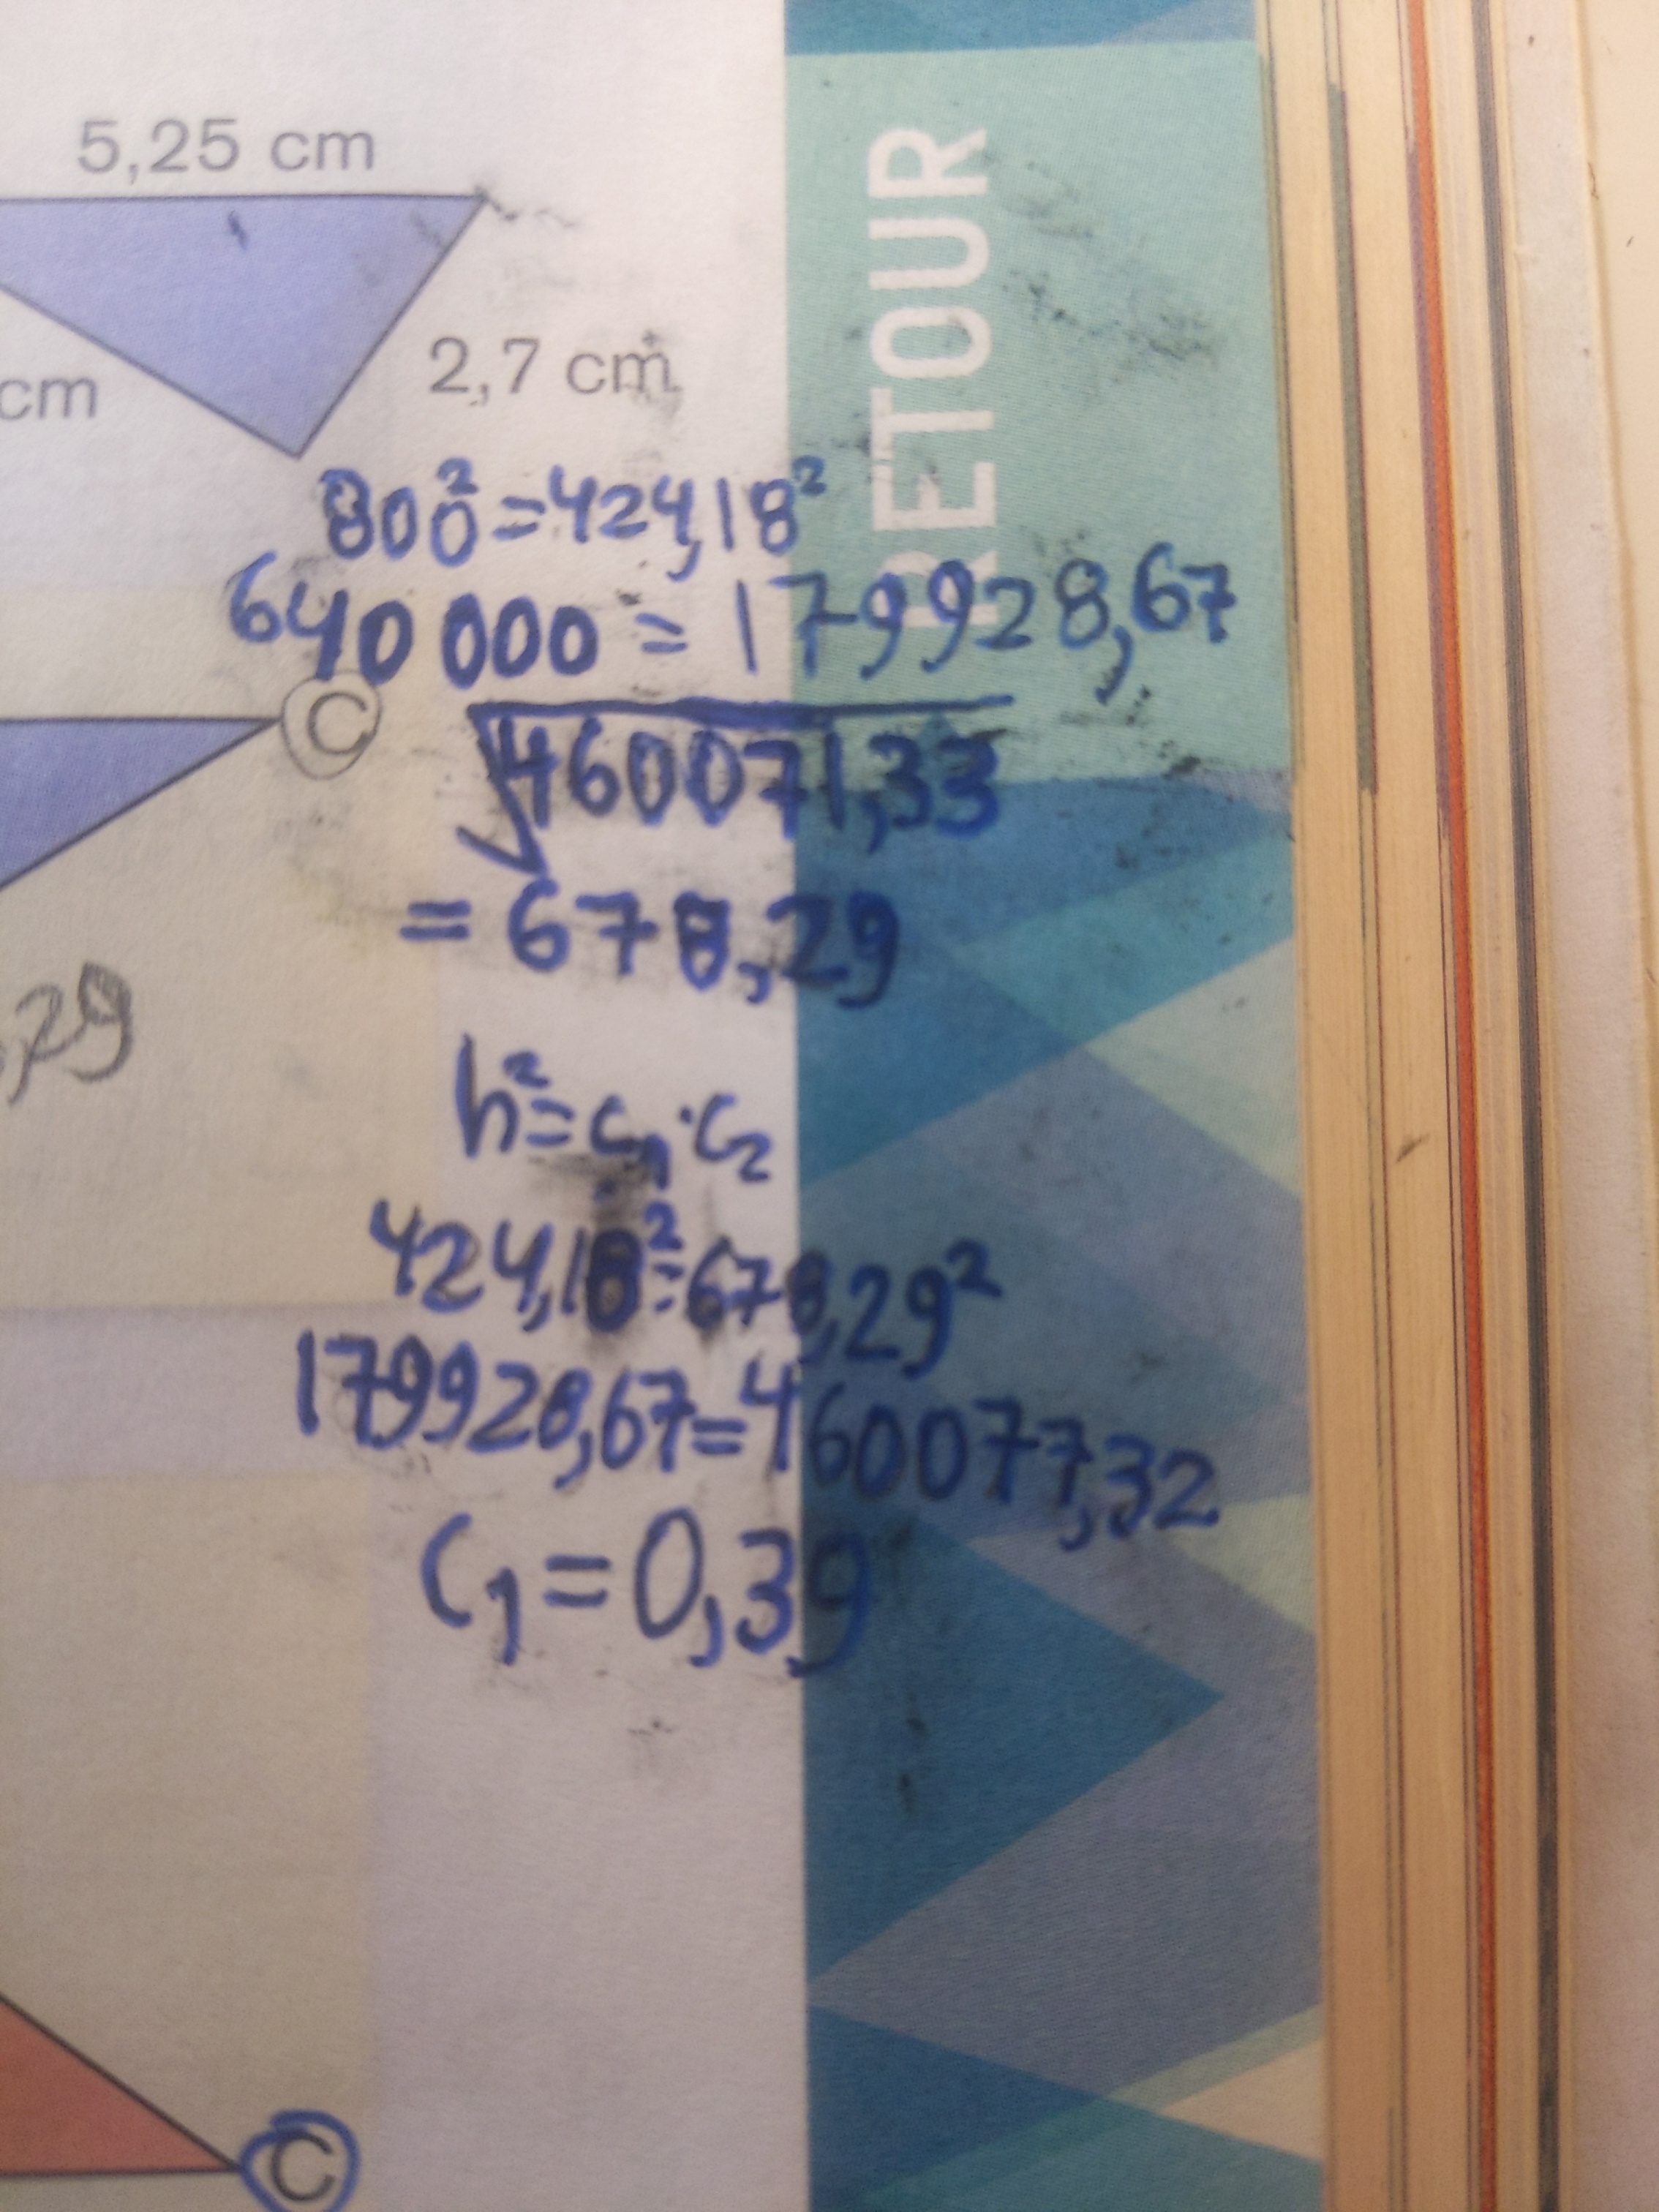 5,25 cm
RETOUR
2,7 cm
cm
800² = 424,18²
640 000 = 179928,67
C
√460071,33
= 678,29
,29
h² = c₁ · c₂
424,18² = 678,29²
179928,67 = 460077,32
C₁ = 0,39
C